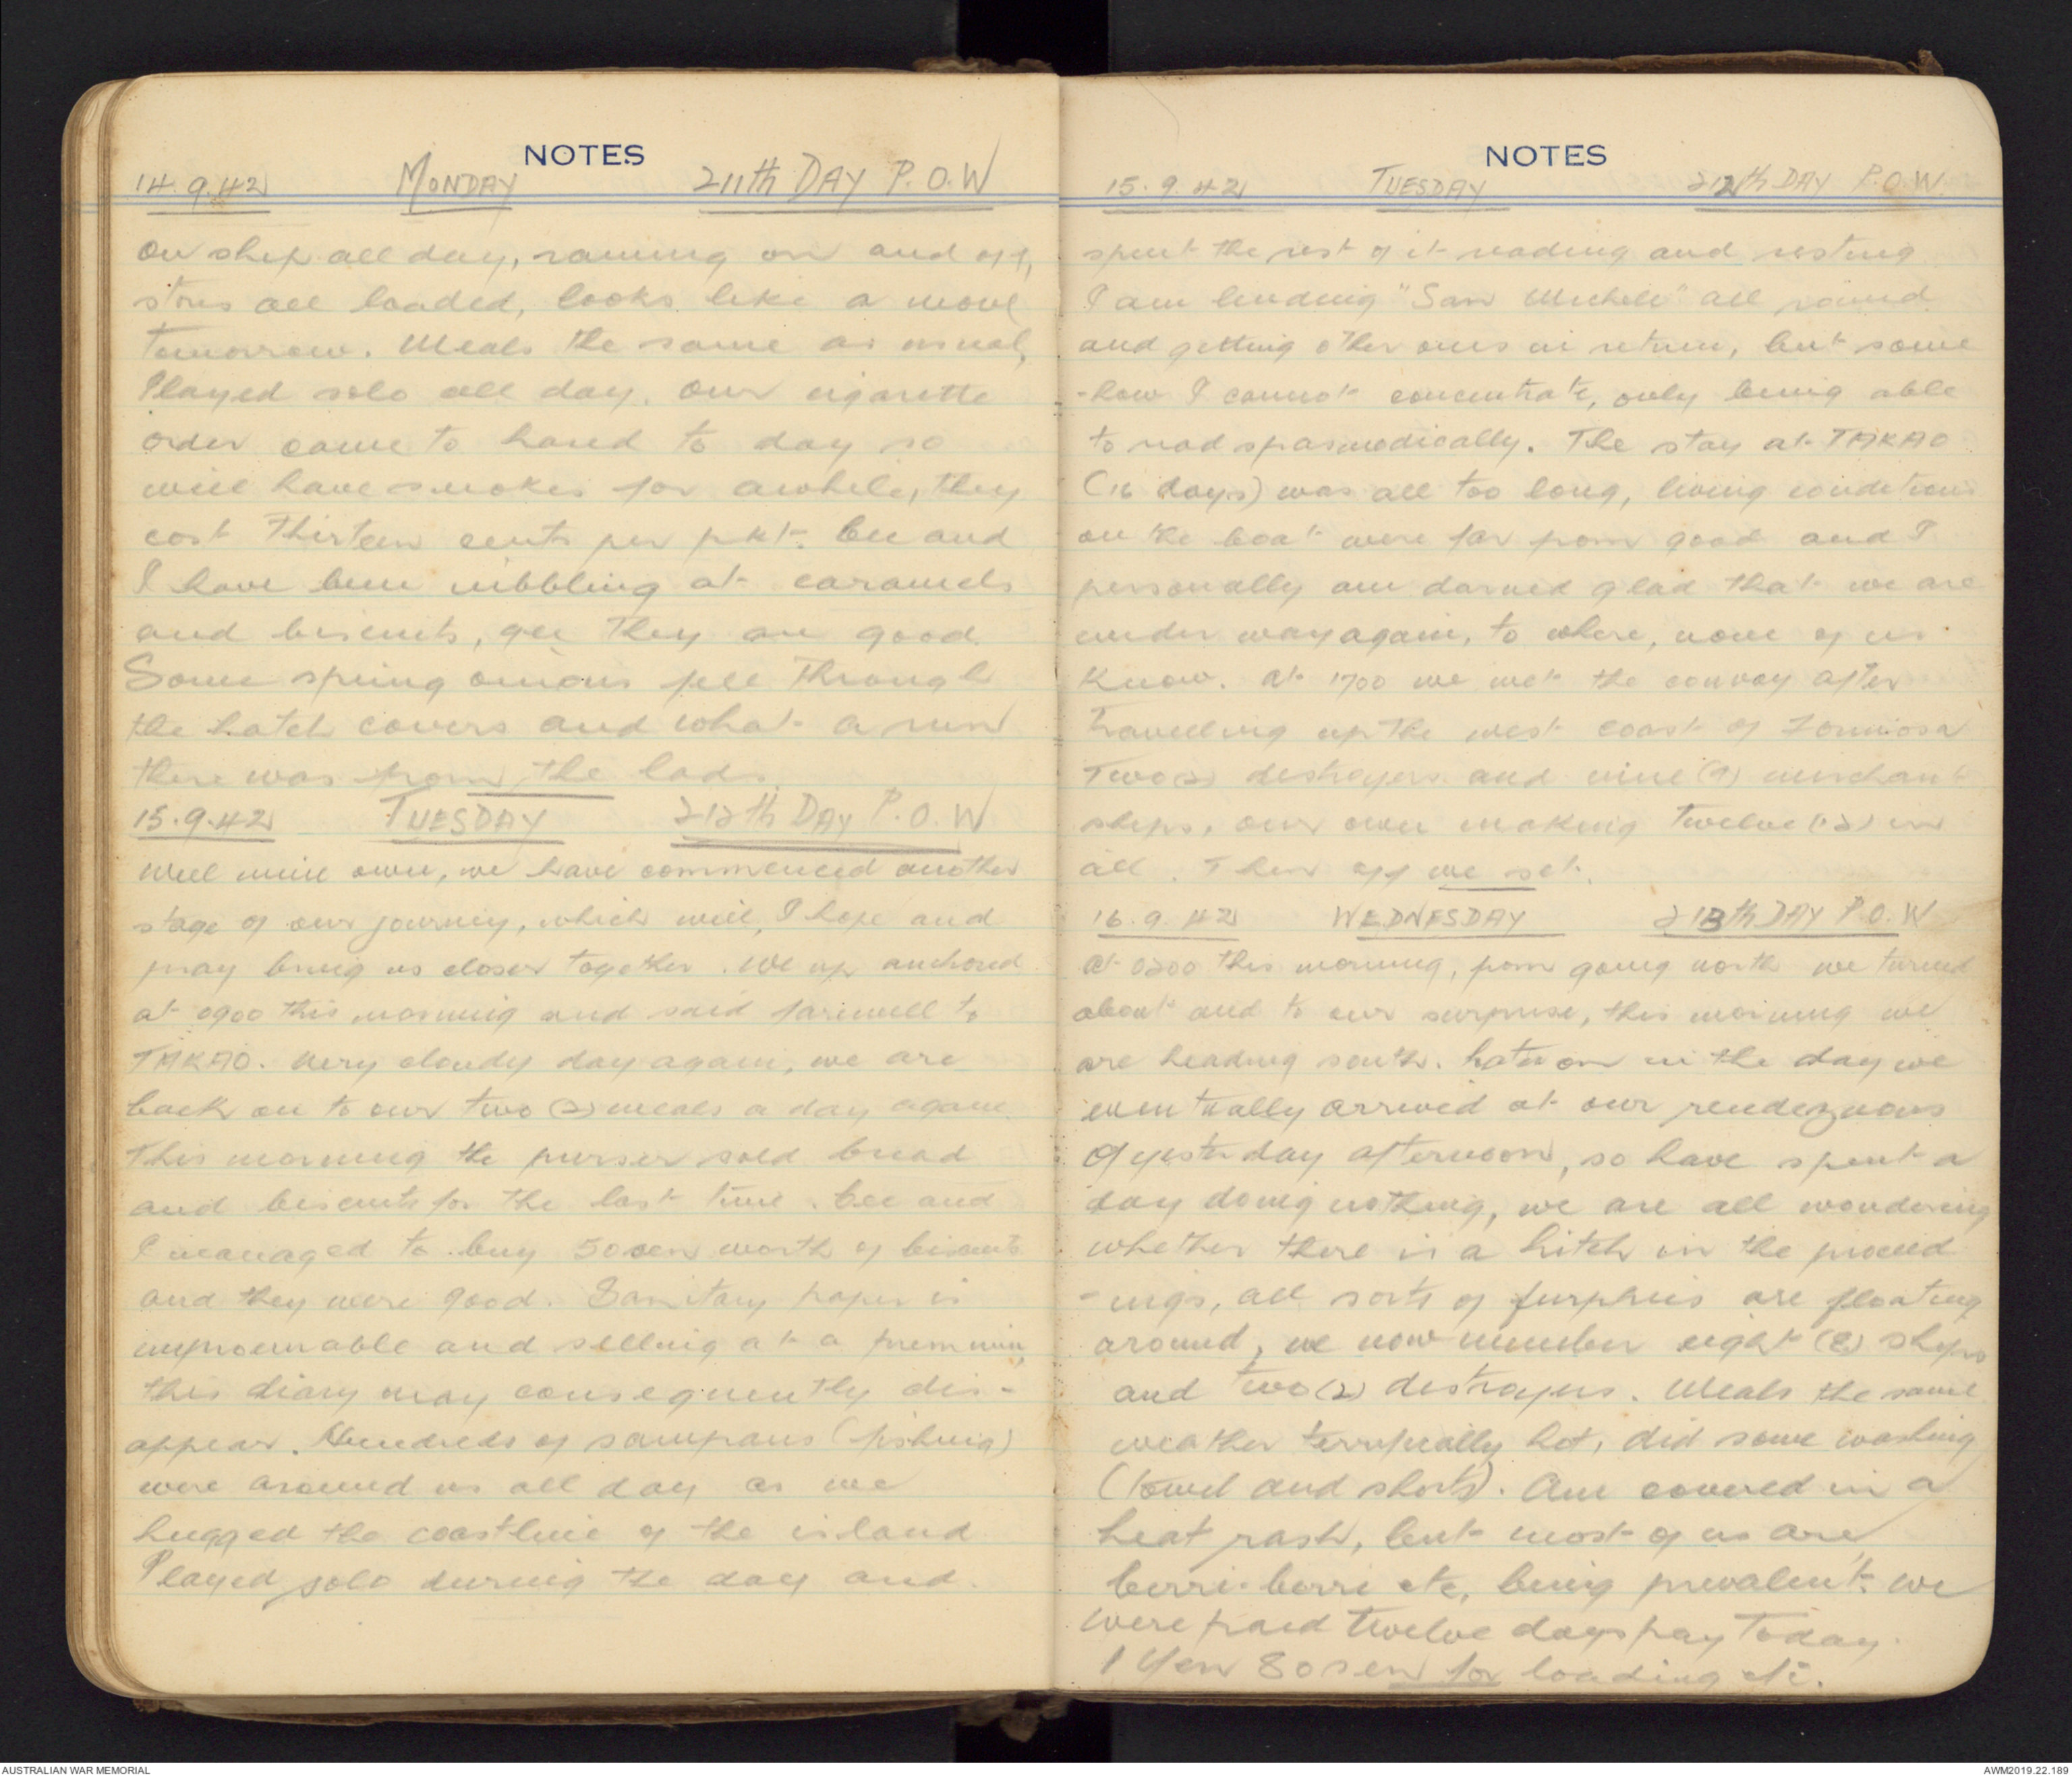 NOTES
14.9.42 MONDAY 211th DAY P.O.W
On ship all day, raining on and off,
stores all loaded, looks like a move
tomorrow. Meals the same as usual,
Played solo all day. Our cigarette
order came to hand to day so
will have smokes for awhile, they
cost Thirteen cents per pkt. Cec and
I have been nibbling at caramels
and biscuits, gee they are good.
Some spring onions fell through
the hatch covers and what a run
there was from the lads.
15.9.42 TUESDAY 212th DAY P.O.W
Well mine own, we have commenced another
stage of our journey, which will, I hope and
pray bring us closer together. We up anchored
at 0900 this morning and said farewell to
TAKAO. Very cloudy day again, we are
back on to our two (2) meals a day again.
This morning the purser sold bread
and biscuits for the last time. Cec and
I managed to buy 50 sen worth of biscuits
and they were good. Sanitary paper is
unprocurable and selling at a premium,
this diary may consequently dis-
appear. Hundreds of sampans (fishing)
were around us all day as we
hugged the coastline of the island
Played solo during the day and
NOTES
15.9.42 TUESDAY 212th DAY P.O.W.
spent the rest of it reading and resting
I am lending "San Michele" all round
and getting other ones in return, but some
-how I cannot concentrate, only being able
to read spasmodically. The stay at TAKAO
(16 days) was all too long, living conditions
on the boat were far from good and I
personally am darned glad that we are
under way again, to where, none of us
know. At 1700 we met the convoy after
travelling up the west coast of Formosa
Two (2) destroyers and nine (9) merchant
ships, our own making twelve (12) in
all. Then off we set.
16.9.42 WEDNESDAY 213th DAY P.O.W
At 0200 this morning, from going north we turned
about and to our surprise, this morning we
are heading south. Later on in the day we
eventually arrived at our rendezvous
of yesterday afternoon, so have spent a
day doing nothing, we are all wondering
whether there is a hitch in the proceed
-ings, all sorts of furphies are floating
around, we now number eight (8) ships
and two (2) destroyers. Meals the same
weather terrifically hot, did some washing
(towel and shorts). Am covered in a
heat rash, but most of us are,
berri-berri etc, being prevalent. We
were paid twelve days pay today.
1 Yen 80 sen for loading etc.
AUSTRALIAN WAR MEMORIAL
AWM2019.22.189